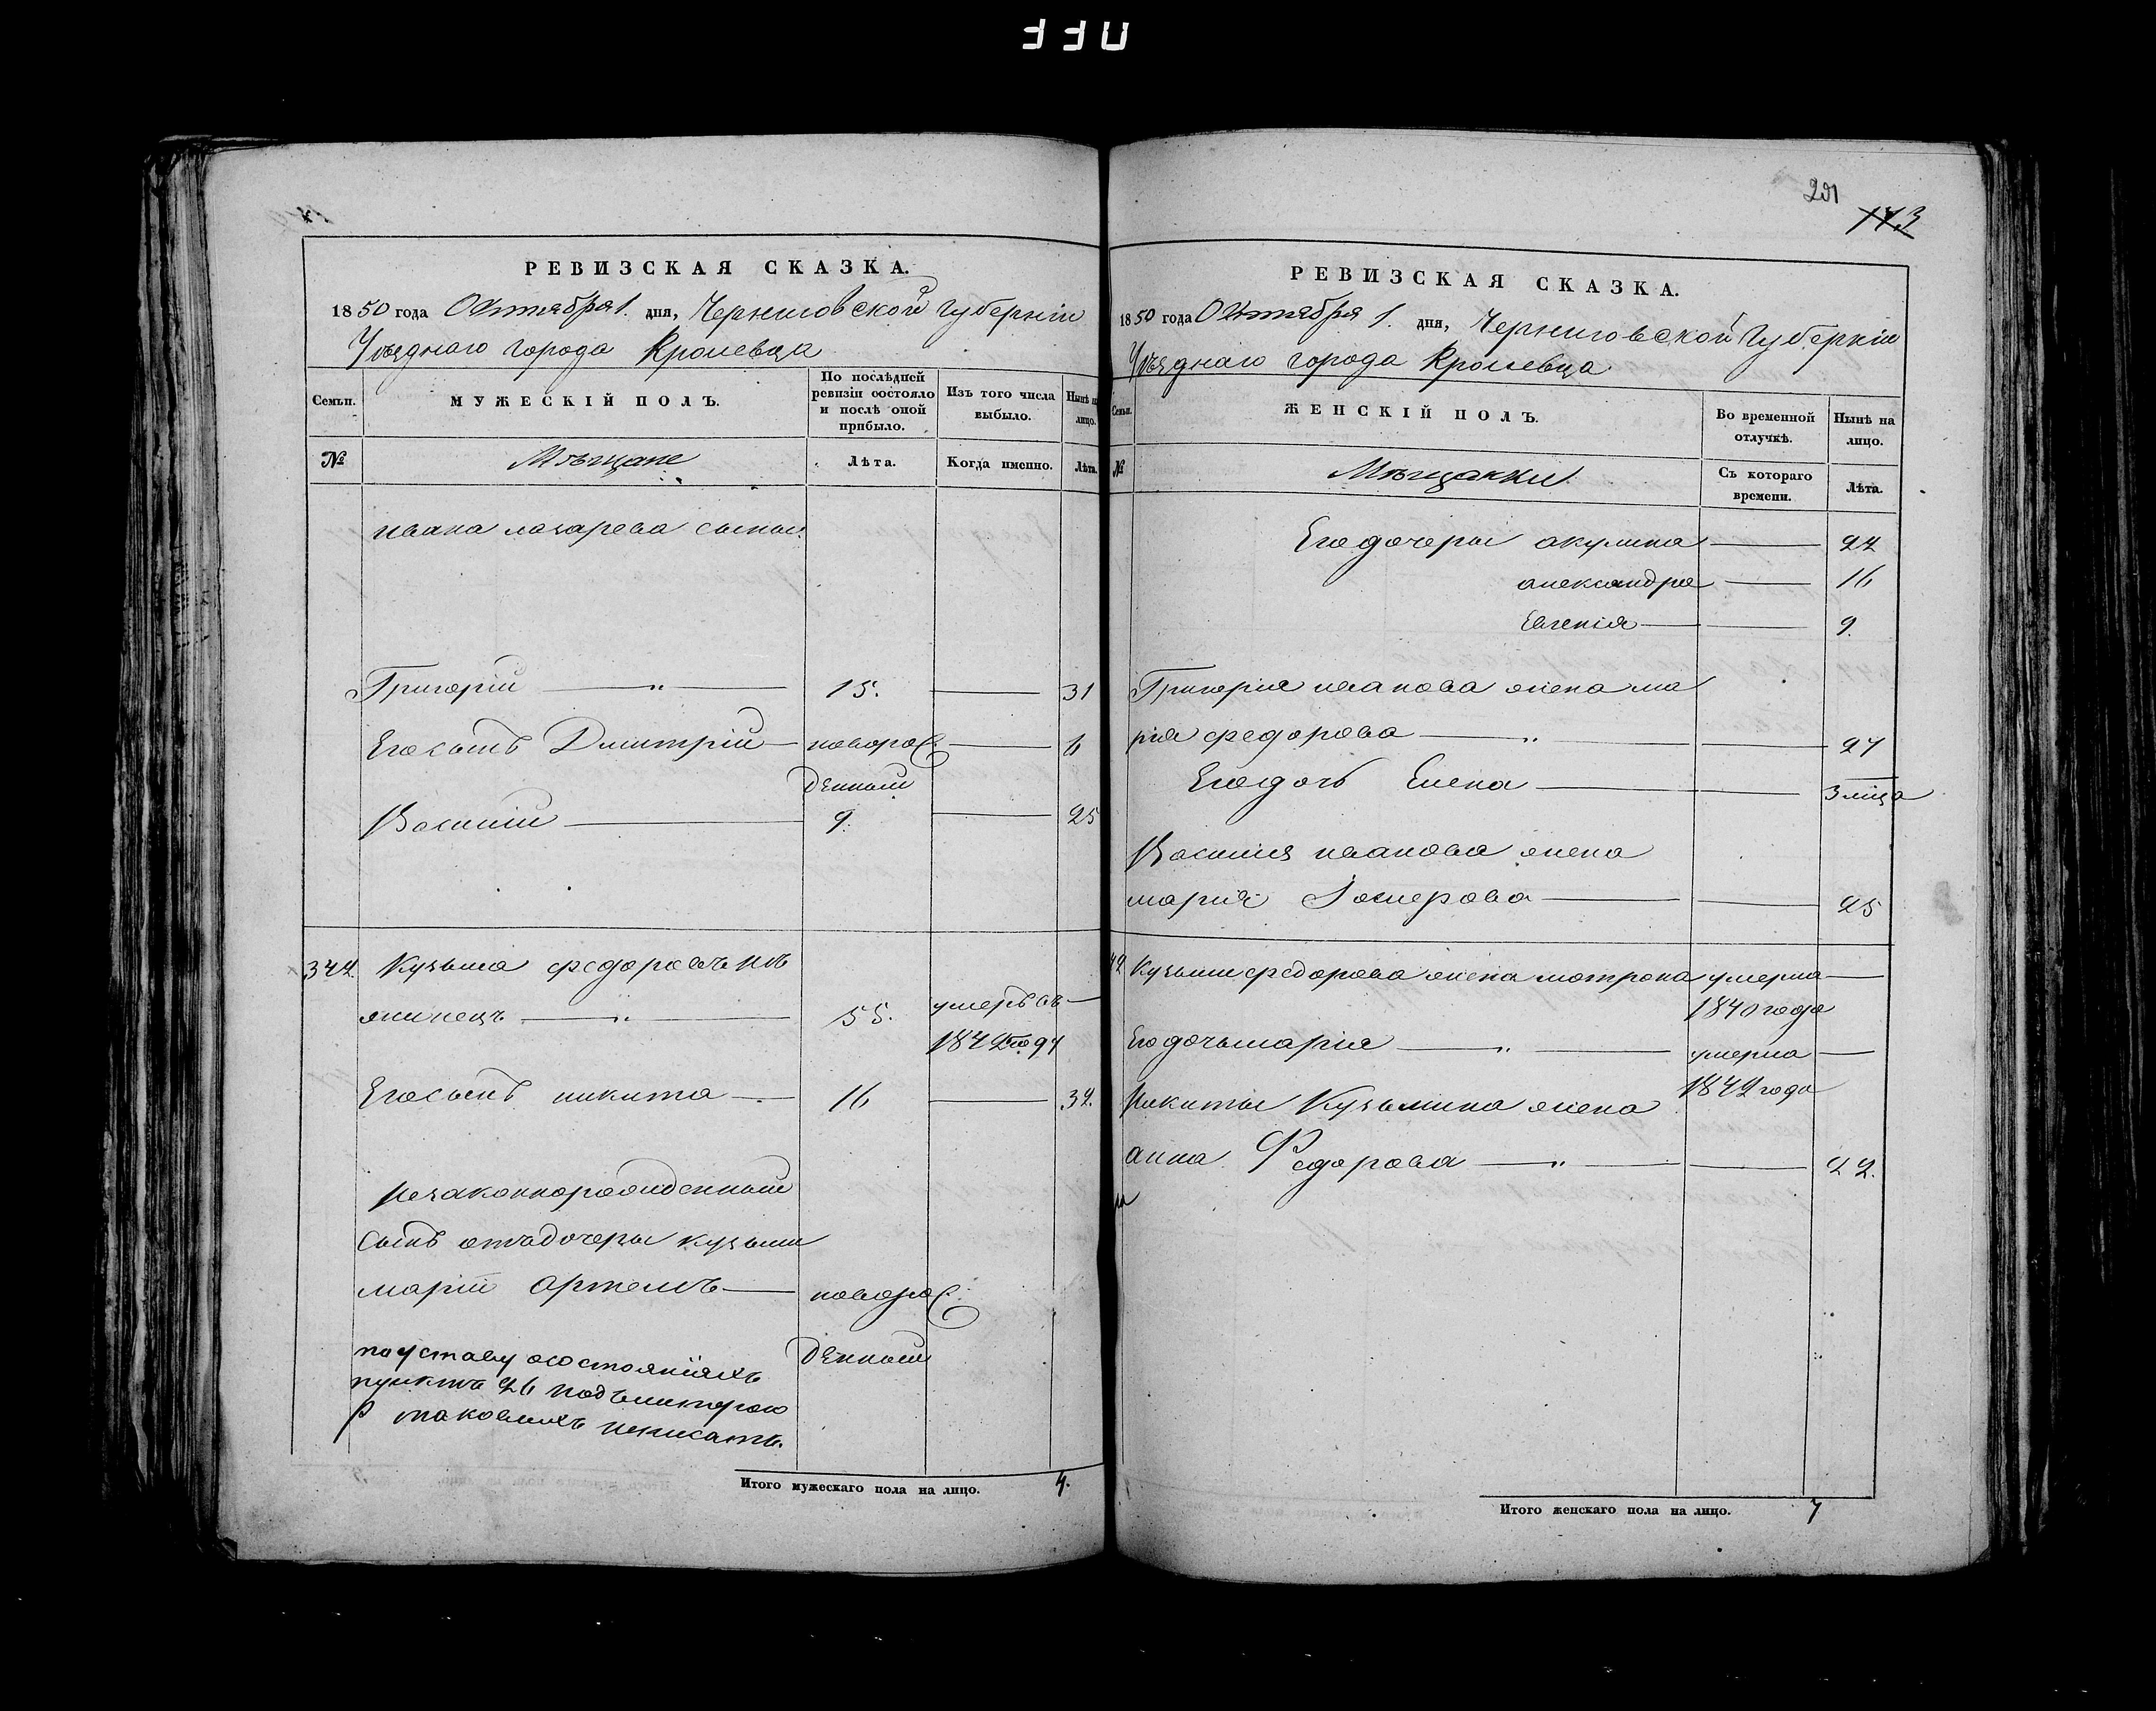 РЕВИЗСКАЯ СКАЗКА.
1850 года Октября 1. дня, Черниговской Губерніи
Уѣзднаго города Кролевца
Семьи. МУЖЕСКІЙ ПОЛЪ. По послѣдней ревизіи состояло и послѣ оной прибыло. Изъ того числа выбыло. Нынѣ на лицо.
№ Мѣщане Лѣта. Когда именно. Лѣта.
ивана лазарева сыны
Григорій — „ — 15. — 31
Его сынъ Дмитрій — новорож
денный — 6
Василий — 9. — 25
342. Кузьма федоровъ
— „ — 55. умеръ въ —
1842го
Его сынъ никита — 16 — 32.
незаконнорожденный
сынъ отъ дочеры кузьмы
маріи артемъ — новорож
денный
по уставу о состояніяхъ
пункта 26 подъ литерою
таковыхъ неписать.
Итого мужескаго пола на лицо. 4.
201
143
РЕВИЗСКАЯ СКАЗКА.
1850 года Октября 1. дня, Черниговской Губерніи
Уѣзднаго города Кролевца
Семьи. ЖЕНСКІЙ ПОЛЪ. Во временной отлучкѣ. Нынѣ на лицо.
№ Мѣщанки Съ котораго времени. Лѣта.
Его дочеры акулина — 22
александра — 16
Евгения — 9.
Григорія иванова жена ма
рия федорова — „ — 27
Его дочь Елена — 3 мца
Василія иванова жена
мария — 25
42 Кузьмы федорова жена матрона умерла —
1840 года
Его дочь мария — „ — умерла —
1842 года
Никиты Кузьмина жена
анна Федорова — „ — 22.
Итого женскаго пола на лицо. 7